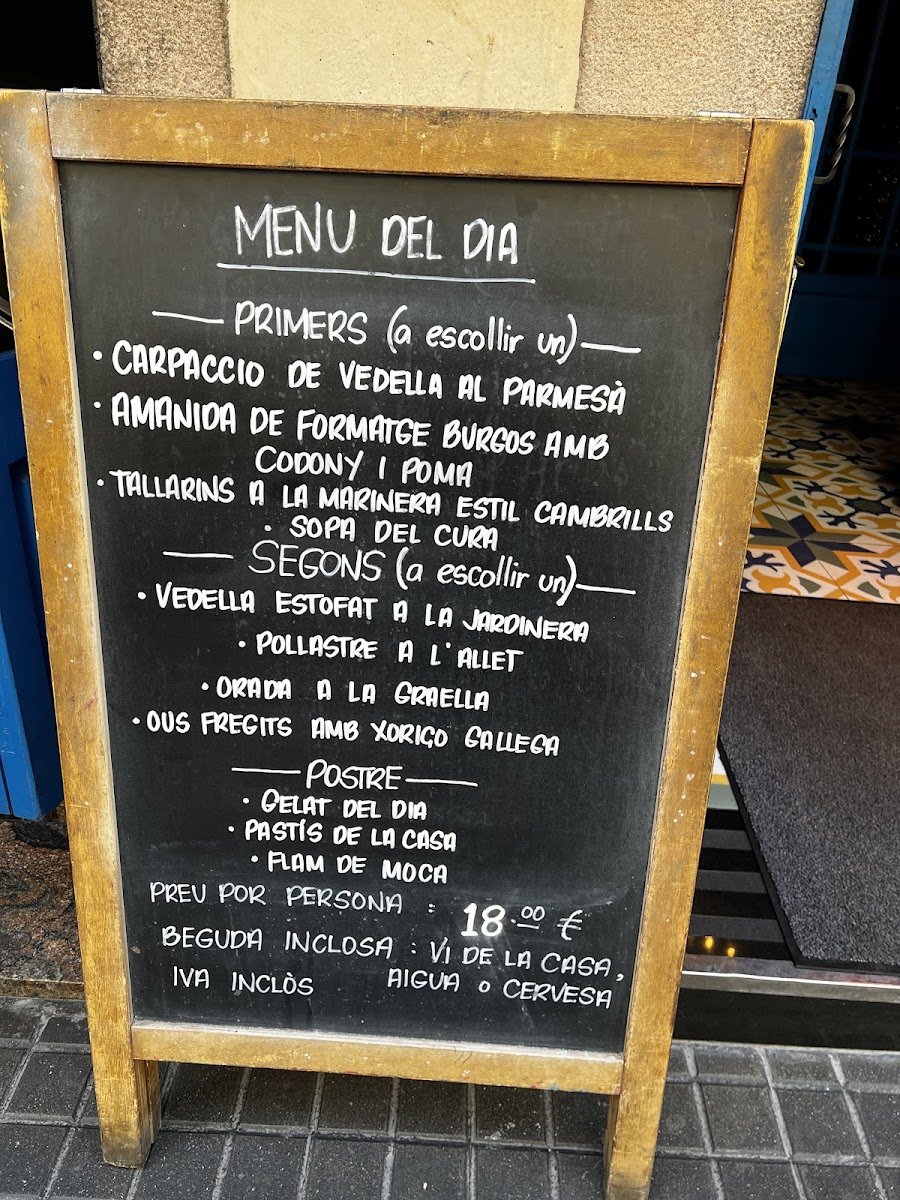 MENU DEL DIA
PRIMERS (a escollir un)
• CARPACCIO DE VEDELLA AL PARMESÀ
• AMANIDA DE FORMATGE BURGOS AMB
CODONY I POMA
• TALLARINS A LA MARINERA ESTIL CAMBRILLS
• SOPA DEL CURA
SEGONS (a escollir un)
• VEDELLA ESTOFAT A LA JARDINERA
• POLLASTRE A L'ALLET
• ORADA A LA GRAELLA
• OUS FREGITS AMB XORIGO GALLEGA
POSTRE
• GELAT DEL DIA
• PASTÍS DE LA CASA
• FLAM DE MOCA
PREU POR PERSONA : 18.00 €
BEGUDA INCLOSA : VI DE LA CASA,
AIGUA o CERVESA
IVA INCLÒS